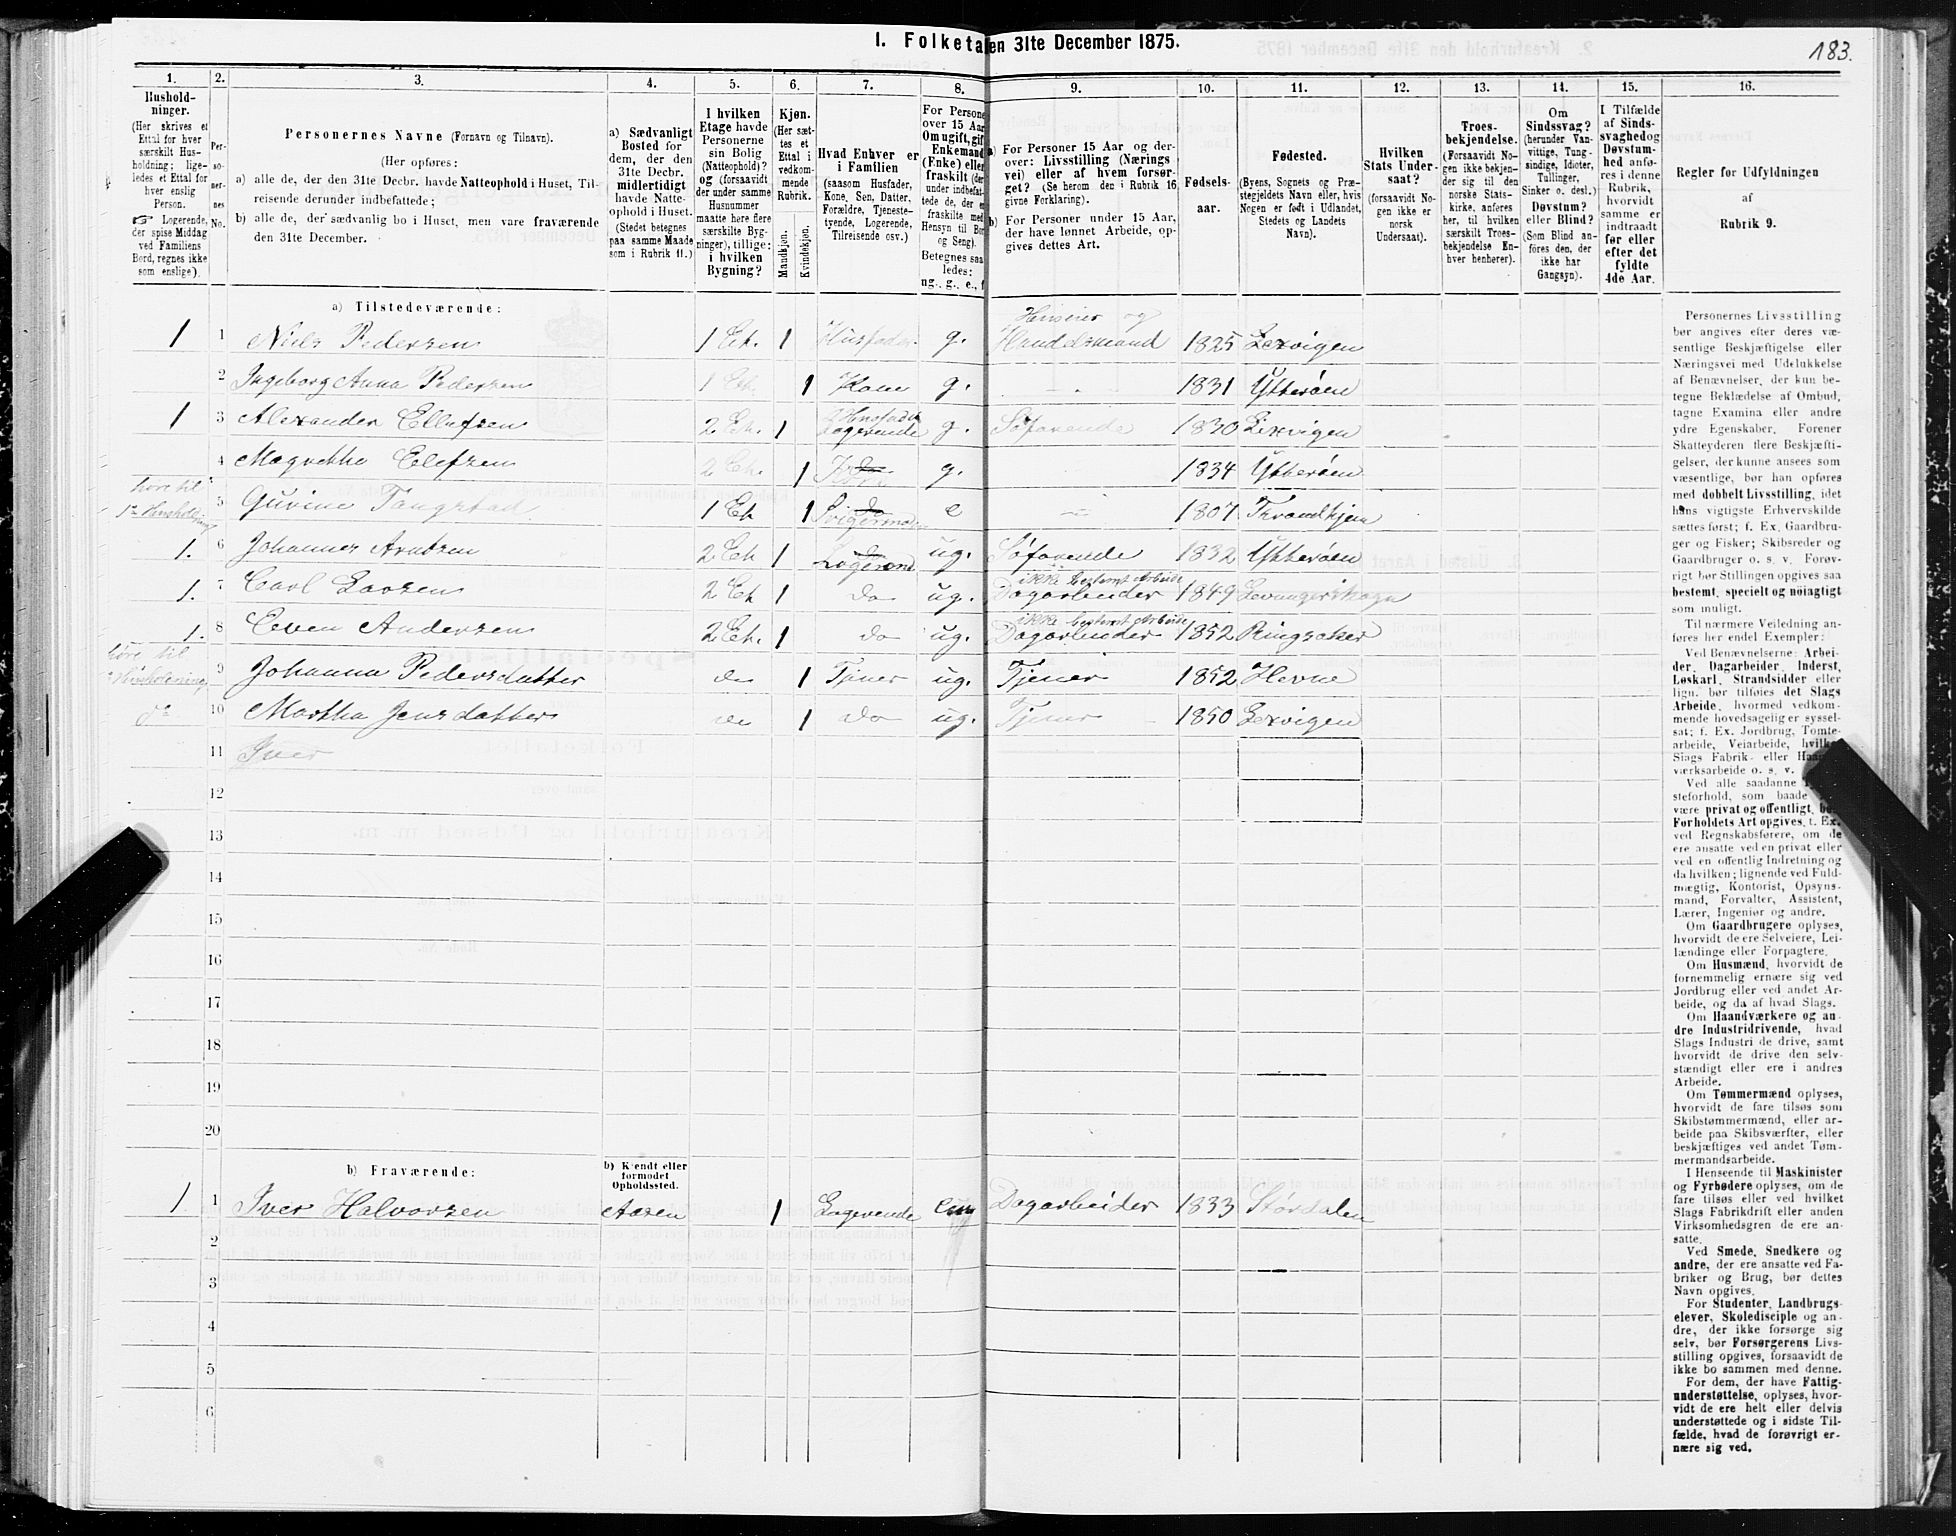 I. Folketal den 31te December 1875.
183.
1. 2. 3. 4. 5. 6. 7. 8. 9. 10. 11. 12. 13. 14. 15. 16.
Husholdninger.
(Her skrives et Ettal for hver særskilt Husholdning; ligeledes et Ettal for hver enslig Person.
☞ Logerende, der spise Middag ved Familiens Bord, regnes ikke som enslige).
Personernes No.
Personernes Navne (Fornavn og Tilnavn).
(Her opføres:
a) alle de, der den 31te Decbr. havde Natteophold i Huset, Tilreisende derunder indbefattede;
b) alle de, der sædvanlig bo i Huset, men vare fraværende den 31te December.
a) Sædvanligt Bosted for dem, der den 31te Decbr. midlertidigt havde Natteophold i Huset.
(Stedet betegnes paa samme Maade som i Rubrik 11.)
I hvilken Etage havde Personerne sin Bolig (Natteophold)? og (forsaavidt der under samme Husnummer maatte høre flere særskilte Bygninger), tillige: i hvilken Bygning?
Kjøn.
(Her sættes et Ettal i vedkommende Rubrik.
Mandkjøn.
Kvindekjøn.
Hvad Enhver er i Familien
(saasom Husfader, Kone, Søn, Datter, Forældre, Tjenestetyende, Logerende, Tilreisende osv.)
For Personer over 15 Aar
Om ugift, gift Enkemand (Enke) eller fraskilt
Betegnes saaledes:
ng., g., e., f
a) For Personer 15 Aar og derover: Livsstilling (Næringsvei) eller af hvem forsørget? (Se herom den i Rubrik 16 givne Forklaring).
b) For Personer under 15 Aar, der have lønnet Arbeide, opgives dettes Art.
Fødselsaar.
Fødested.
(Byens, Sognets og Præstegjeldets Navn eller, hvis Nogen er født i Udlandet, Stedets og Landets Navn).
Hvilken Stats Undersaat?
(forsaavidt Nogen ikke er norsk Undersaat).
Troesbekjendelse.
(Forsaavidt Nogen ikke bekjender sig til den norske Statskirke, anføres her, til hvilken særskilt Troesbekjendelse Enhver henhører).
Om Sindssvag?
(herunder Vanvittige, Tungsindige, Idioter, Tullinger, Sinker o. desl.)
Døvstum? eller Blind?
(Som Blind anføres den, der ikke har Gangsyn).
I Tilfælde af Sindssvaghed og Døvstumhed anføres i denne Rubrik, hvorvidt samme er indtraadt før eller efter det fyldte 4de Aar.
Regler før Udfyldningen
af
Rubrik 9.
a) Tilstedeværende:
1 1 Niels Pedersen 1 Et. 1 Husfader g. Huseier og Handelsmand 1825 Lexvigen
2 Ingeborg Anna Pedersen 1 Et. 1 Kone g. 1831 Ytterøen
1 3 Alexander Ellefsen 2 Et. 1 Husfader Logerende g. Søfarende 1830 Lexvigen
4 Magrethe Elefsen 2 Et. 1 do g. 1834 Ytterøen
høre til 1ste Husholdning 5 Guvine Tangstad 1 Et 1 do Svigermoder e 1807 Trondhjem
1. 6 Johannes Arntzen 2 Et 1 do Logerend ug. Søfarende 1832 Ytterøen
1. 7 Carl Larsen 2 Et 1 do ug. Dagarbeider ikke bestemt Arbeide 1849 Levangerskogn
1. 8 Even Andersen 2 Et. 1 do ug. Dagarbeider ikke bestemt Arbeide 1852 Ringsaker
høre til Husholdning 9 Johanna Pedersdatter 1 Tjener ug. Tjener 1852 Hevne
do 10 Martha Jensdatter 1 do ug. Tjener 1850 Lexvigen
11 Iver
12
13
14
15
16
17
18
19
20
b) Fraværende:
b) Kjendt eller formodet Opholdssted.
1. 1 Iver Halvorsen Aasen 1 Logerende Dagarbeider 1833 Størdalen
2
3
4
5
6
Personernes Livsstilling
bør angives efter deres væ-
sentlige Beskjæftigelse eller
Næringsvei med Udelukkelse
af Benævnelser, der kun be-
tegne Beklædelse af Ombud,
tagne Examina eller andre
ydre Egenskaber. Forener
Skatteyderen flere Beskjæfti-
gelser, der kunne ansees som
væsentlige, bør han opføres
med dobbelt Livsstilling, idet
hans vigtigste Erhvervskilde
sættes først; f. Ex. Gaardbru-
ger og Fisker; Skibsreder og
Gaardbruger o. s. v. Forøv-
rigt bør Stillingen opgives saa
bestemt, specielt og nöiagtigt
som muligt.
Til nærmere Veiledning an-
føres her endel Exempler:
Ved Benævnelserne: Arbei-
der, Dagarbeider, Inderst,
Løskarl, Strandsidder eller
lign. bør tilføies det Slags
Arbeide, hvormed vedkom-
mende hovedsagelig er syssel-
sat; f. Ex. Jordbrug, Tomte-
arbeide, Veiarbeide, hvilket
Slags Fabrik- eller Haand-
værksarbeide o. s. v.
Ved alle saadanne
steforhold, som baade
være privat og offentligt, bør
Forholdets Art opgives, t. Ex.
ved Regnskabsførere, om de
ere ansatte ved en privat eller
ved en offentlig Indretning og
da hvilken; lignende ved Fuld-
mægtig, Kontorist, Opsyns-
mand, Forvalter, Assistent,
Lærer, Ingeniør og andre.
Om Gaardbrugere oplyses,
hvorvidt de ere Selveiere, Lei-
lændinge eller Forpagtere.
Om Husmænd, hvorvidt de
fornemmelig ernære sig ved
Jordbrug eller ved andet Ar-
beide, og da af hvad Slags.
Om Haandværkere og an-
dre Industridrivende, hvad
Slags Industri de drive, samt
hvorvidt de drive den selv-
stændigt eller ere i andres
Arbeide.
Om Tømmermænd oplyses,
hvorvidt de fare tilsøs som
Skibstømmermænd, eller ar-
beide paa Skibsværfter, eller
beskjæftiges ved andet Tøm-
mermandsarbeide.
I Henseende til Maskinister
og Fyrbødere oplyses, om de
fare tilsøs eller ved hvilket
Slags Fabrikdrift eller anden
Virksomhedsgren de ere an-
satte.
Ved Smede, Snedkere og
andre, der ere ansatte ved Fa-
briker og Brug, bør dettes
Navn opgives.
For Studenter, Landbrugs-
elever, Skoledisciple og an-
dre, der ikke forsørge sig
selv, bør Forsørgerens Livs-
stilling opgives, forsaavidt de
ikke bo sammen med denne.
For dem, der have Fattig-
understøttelse, oplyses, hvor-
vidt de ere helt eller delvis
understøttede og i sidste Til-
fælde, hvad de forøvrigt er-
nære sig ved.